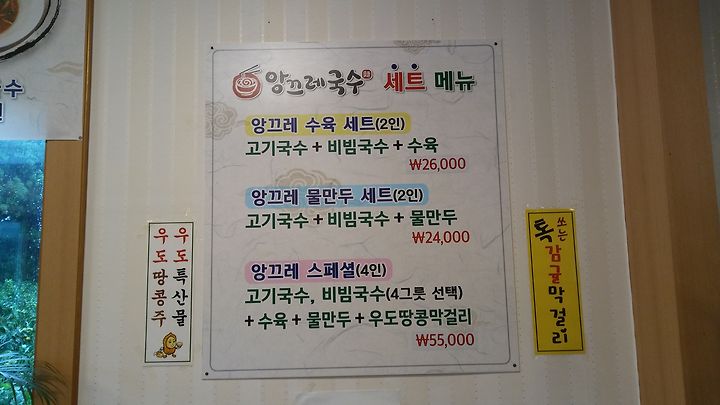 앙끄레국수 세트 메뉴
앙끄레 수육 세트(2인)
고기국수 + 비빔국수 + 수육
₩26,000
앙끄레 물만두 세트(2인)
고기국수 + 비빔국수 + 물만두
₩24,000
앙끄레 스페셜(4인)
고기국수, 비빔국수(4그릇 선택)
+ 수육 + 물만두 + 우도땅콩막걸리
₩55,000
우도특산물
우도땅콩주
톡쏘는
감귤막걸리
수